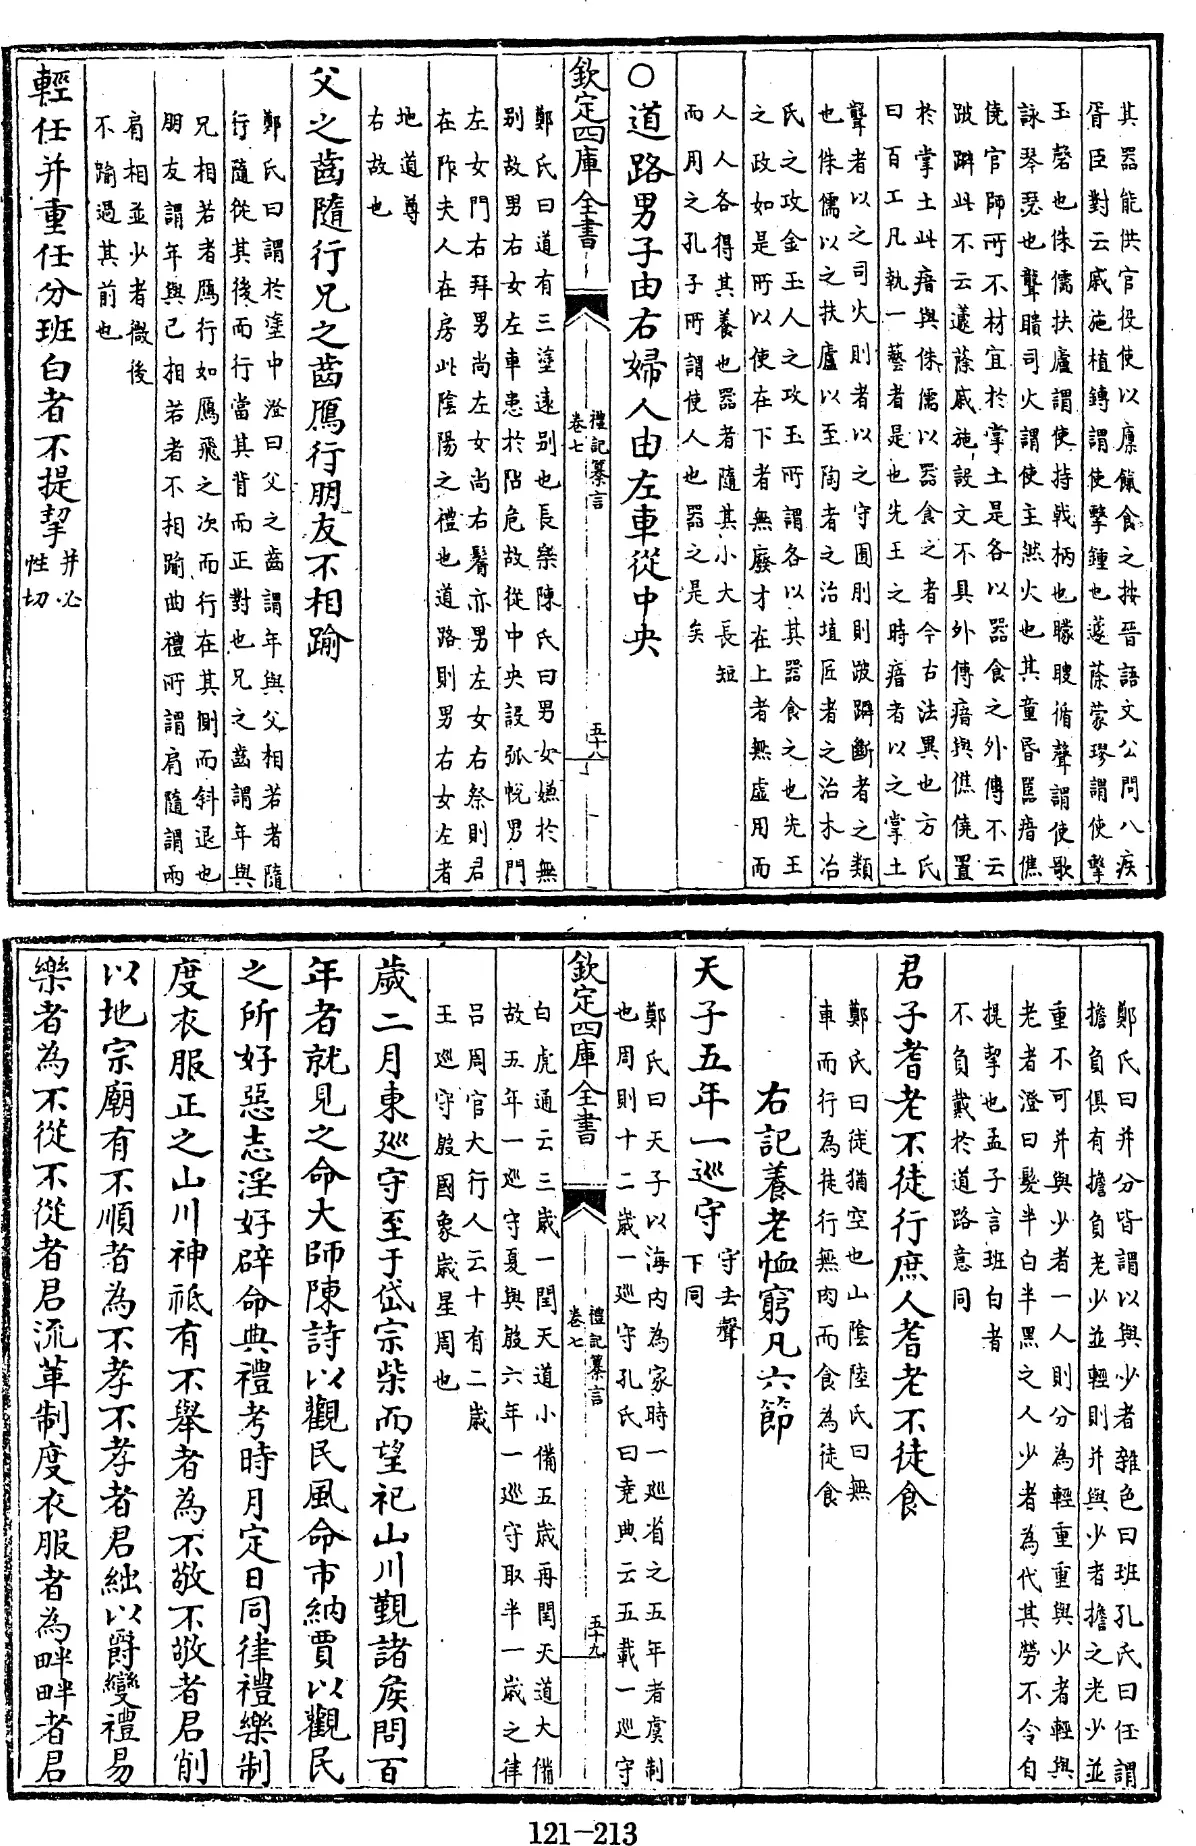 其器能供官役使以廩餼食之按晉語文公問八疾
胥臣對云戚施植鎛謂使擊鐘也蘧蒢蒙璆謂使擊
玉磬也侏儒扶廬謂使持戟柄也矇瞍循聲謂使歌
詠琴瑟也聾聵司火謂使主然火也其童昏嚚瘖僬
僥官師所不材宜於掌土是各以器食之外傳不云
跛躃此不云蘧蒢戚施設文不具外傳瘖與僬僥置
於掌土此瘖與侏儒以器食之者今古法異也方氏
曰百工凡執一藝者是也先王之時瘖者以之掌土
聾者以之司火則者以之守囿刖則跛躃斷者之類
也侏儒以之扶廬以至陶者之治埴匠者之治木冶
氏之攻金玉人之攻玉所謂各以其器食之也先王
之政如是所以使在下者無廢才在上者無虛用而
人人各得其養也器者隨其小大長短
而用之孔子所謂使人也器之是矣
○道路男子由右婦人由左車從中央
欽定四庫全書
禮記纂言
卷七
五十八
鄭氏曰道有三塗遠别也長樂陳氏曰男女嫌於無
别故男右女左車患於陷危故從中央設弧帨男門
左女門右拜男尚左女尚右鬌亦男左女右祭則君
在阼夫人在房此陰陽之禮也道路則男右女左者
地道尊
右故也
父之齒隨行兄之齒鴈行朋友不相踰
鄭氏曰謂於塗中澄曰父之齒謂年與父相若者隨
行隨從其後而行當其背而正對也兄之齒謂年與
兄相若者鴈行如鴈飛之次而行在其側而斜退也
朋友謂年與己相若者不相踰曲禮所謂肩隨謂兩
肩相並少者微後
不踰過其前也
輕任并重任分班白者不提挈
并必
性切
鄭氏曰并分皆謂以與少者雜色曰班孔氏曰任謂
擔負俱有擔負老少並輕則并與少者擔之老少並
重不可并與少者一人則分為輕重重與少者輕與
老者澄曰髮半白半黑之人少者為代其勞不令自
提挈也孟子言班白者
不負戴於道路意同
君子耆老不徒行庶人耆老不徒食
鄭氏曰徒猶空也山陰陸氏曰無
車而行為徒行無肉而食為徒食
右記養老恤窮凡六節
天子五年一巡守
守去聲
下同
鄭氏曰天子以海内為家時一巡省之五年者虞制
也周則十二歲一巡守孔氏曰堯典云五載一巡守
欽定四庫全書
禮記纂言
卷七
五十九
白虎通云三歲一閏天道小備五歲再閏天道大備
故五年一巡守夏與殷六年一巡守取半一歲之律
吕周官大行人云十有二歲
王巡守殷國象歲星周也
歲二月東巡守至于岱宗柴而望祀山川覲諸侯問百
年者就見之命大師陳詩以觀民風命市納賈以觀民
之所好惡志淫好辟命典禮考時月定日同律禮樂制
度衣服正之山川神祇有不舉者為不敬不敬者君削
以地宗廟有不順者為不孝不孝者君絀以爵變禮易
樂者為不從不從者君流革制度衣服者為畔畔者君
121-213